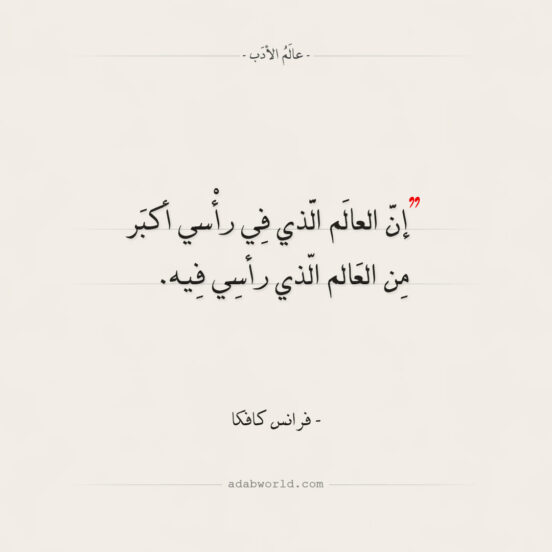 - عالَمُ الأدَب -
”إنّ العالَم الّذي فِي رأْسي أكبَر
مِن العَالم الّذي رأسِي فِيه.
- فرانس كافكا
adabworld.com